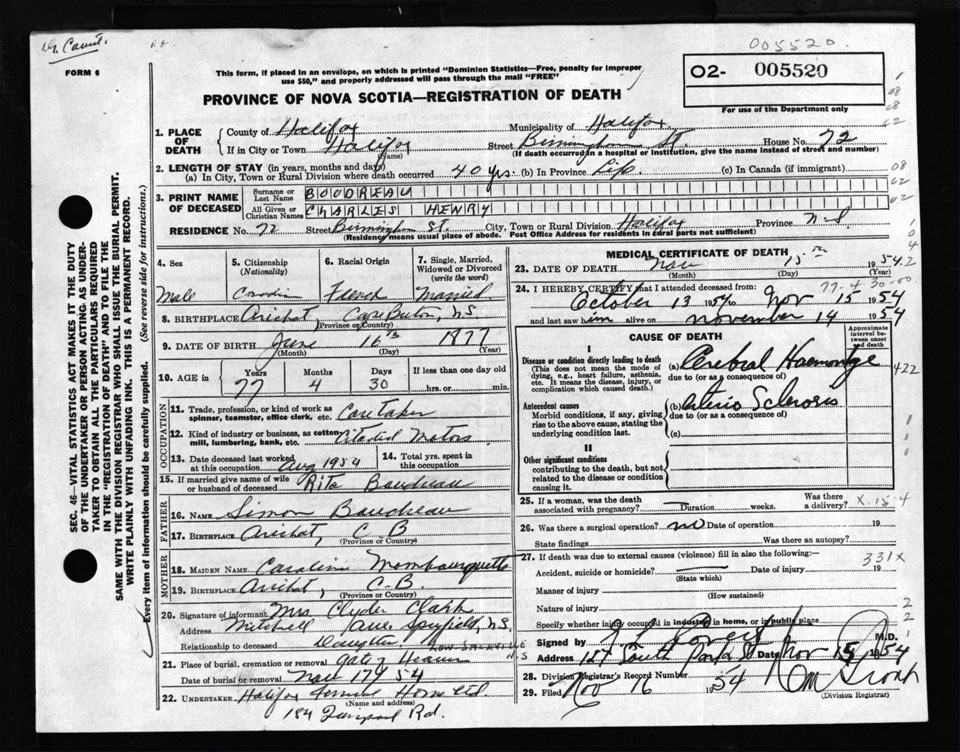 005520.
FORM 6
This form, if placed in an envelope, on which is printed "Dominion Statistics—Free, penalty for improper
use $50," and properly addressed will pass through the mail "FREE"
PROVINCE OF NOVA SCOTIA—REGISTRATION OF DEATH
02- 005520
For use of the Department only
1. PLACE OF DEATH
County of Halifax Municipality of Halifax
If in City or Town Halifax Street Birmingham St. House No. 72
(Name) (If death occurred in a hospital or institution, give the name instead of street and number)
2. LENGTH OF STAY (in years, months and days)
(a) In City, Town or Rural Division where death occurred 40 yrs. (b) In Province Life. (c) In Canada (if immigrant)
3. PRINT NAME OF DECEASED
Surname or Last Name BOUDREAU
All Given or Christian Names CHARLES HENRY
RESIDENCE No. 72 Street Birmingham St. City, Town or Rural Division Halifax Province N.S
(Residence means usual place of abode. Post Office Address for residents in rural parts not sufficient)
4. Sex Male
5. Citizenship (Nationality) Canadian
6. Racial Origin French
7. Single, Married, Widowed or Divorced (write the word) Married
8. BIRTHPLACE Arichat Cape Breton, N.S.
(Province or Country)
9. DATE OF BIRTH June 16th 1877
(Month) (Day) (Year)
10. AGE in Years 77 Months 4 Days 30 If less than one day old
hrs. or min.
OCCUPATION
11. Trade, profession, or kind of work as spinner, teamster, office clerk, etc. Caretaker
12. Kind of industry or business, as cotton mill, lumbering, bank, etc. Motors
13. Date deceased last worked at this occupation Aug 1954 14. Total yrs. spent in this occupation
15. If married give name of wife or husband of deceased Rita Boudreau
FATHER
16. NAME Simon Boudreau
17. BIRTHPLACE Arichat, C B
(Province or Country)
MOTHER
18. MAIDEN NAME Caroline Mombourquette
19. BIRTHPLACE Arichat, C.B.
(Province or Country)
20. Signature of informant Mrs. Clyde Clark
Address Mitchell Ave Spryfield, N.S.
Relationship to deceased Daughter
21. Place of burial, cremation or removal Gate of Heaven
Date of burial or removal Nov 17 54
22. UNDERTAKER Halifax Funeral Home Ltd
(Name and address)
184 Rd.
MEDICAL CERTIFICATE OF DEATH
23. DATE OF DEATH Nov 15th 1954
(Month) (Day) (Year)
24. I HEREBY CERTIFY that I attended deceased from:
October 13 1954 to Nov 15 1954
and last saw him alive on November 14 1954
CAUSE OF DEATH
Approximate interval between onset and death
I
Disease or condition directly leading to death
(This does not mean the mode of dying, e.g., heart failure, asthenia, etc. It means the disease, injury, or complication which caused death.)
(a) Cerebral Haemorrhage
due to (or as a consequence of)
422
Antecedent causes
Morbid conditions, if any, giving rise to the above cause, stating the underlying condition last.
(b) Arterio Sclerosis
due to (or as a consequence of)
(c)
II
Other significant conditions
contributing to the death, but not related to the disease or condition causing it.
25. If a woman, was the death associated with pregnancy? Duration weeks. Was there a delivery?
26. Was there a surgical operation? no Date of operation 19
State findings Was there an autopsy?
27. If death was due to external causes (violence) fill in also the following:— 331X
Accident, suicide or homicide? Date of injury 19
(State which)
Manner of injury
(How sustained)
Nature of injury
Specify whether injury occurred in industry in home, or in public place
Signed by M.D.
Address 187 South Park St Date Nov 15 1954
28. Division Registrar's Record Number
29. Filed Nov 16 1954
(Division Registrar)
SEC. 46—VITAL STATISTICS ACT MAKES IT THE DUTY
OF THE UNDERTAKER OR PERSON ACTING AS UNDER-
TAKER TO OBTAIN ALL THE PARTICULARS REQUIRED
IN THE "REGISTRATION OF DEATH" AND TO FILE THE
SAME WITH THE DIVISION REGISTRAR WHO SHALL ISSUE THE BURIAL PERMIT.
WRITE PLAINLY WITH UNFADING INK. THIS IS A PERMANENT RECORD.
Every item of information should be carefully supplied. (See reverse side for instructions.)